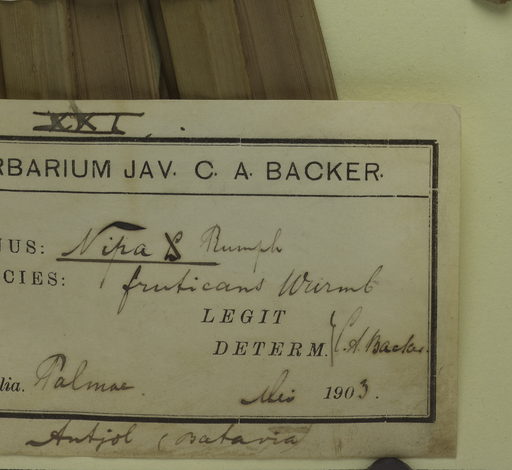 XXI
RBARIUM JAV. C. A. BACKER.
NUS: Nipa Rumph
CIES: fruticans Wurmb
LEGIT
DETERM. C. A. Backer.
lia. Palmae. Mei 1903.
Antjol (Batavia)